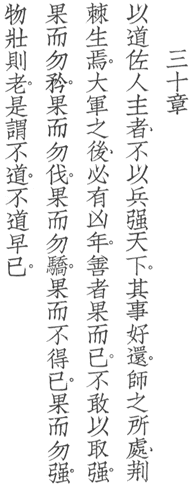 三十章
以道佐人主者、不以兵强天下。其事好還。師之所處、荆
棘生焉。大軍之後、必有凶年。善者果而已。不敢以取强。
果而勿矜。果而勿伐。果而勿驕。果而不得已。果而勿强。
物壯則老。是謂不道。不道早已。